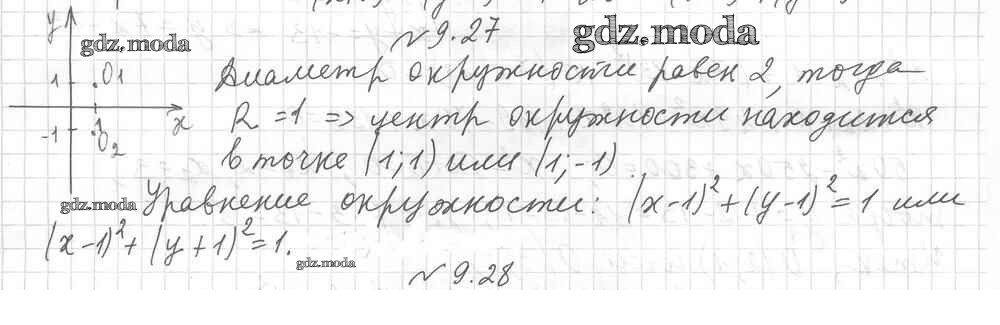 y
gdz.moda
№ 9.27
gdz.moda
1
O1
Диаметр окружности равен 2, тогда
x
R = 1 => центр окружности находится
-1
O2
в точке (1; 1) или (1; -1)
gdz.moda
Уравнение окружности: (x-1)² + (y-1)² = 1 или
(x-1)² + (y+1)² = 1.
gdz.moda
№ 9.28